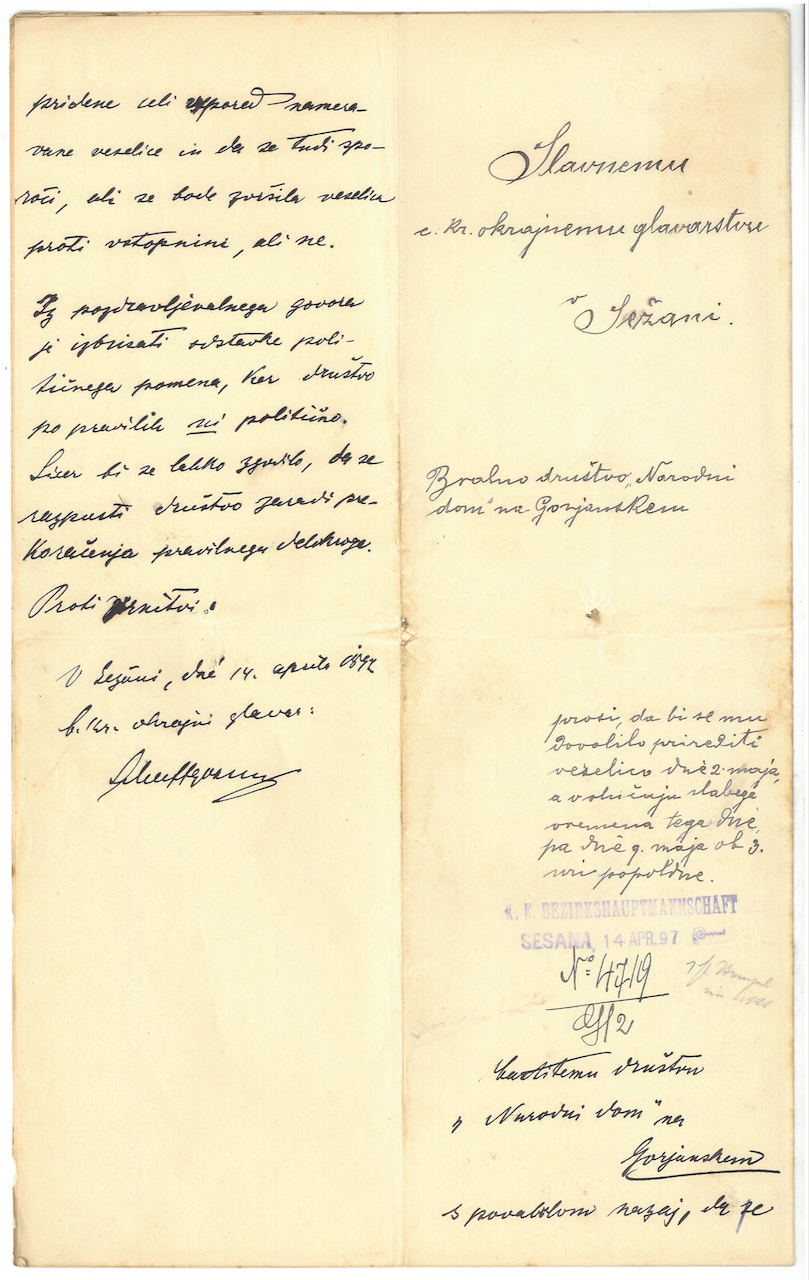 Slavnemu
c. kr. okrajnemu glavarstvu
v
Sežani.
Bralno društvo „Narodni
dom“ na Gorjanskem
prosi, da bi se mu
dovolilo prirediti
veselico dnè 2. maja,
a v slučaju slabega
vremena tega dnè,
pa dnè 9. maja ob 3.
uri popoldne.
K. K. BEZIRKSHAUPTMANNSCHAFT
SESANA, 14 APR. 97
No: 4719
Častitemu društvu
„Narodni dom“ na
Gorjanskem
s povabilom nazaj, da se
pridene celi vspored namera-
vane veselice in da se tudi spo-
roči, ali se bode zvršila veselica
proti vstopnini, ali ne.
Iz pozdravljevalnega govora
je izbrisati odstavke poli-
tičnega pomena, ker društvo
po pravilih ni politično.
Sicer bi se lahko zgodilo, da se
razpusti društvo zaradi pre-
koračenja pravilnega delokroga.
Proti vrnitvi.
V Sežani, dné 14. aprila 1897
C. kr. okrajni glavar: